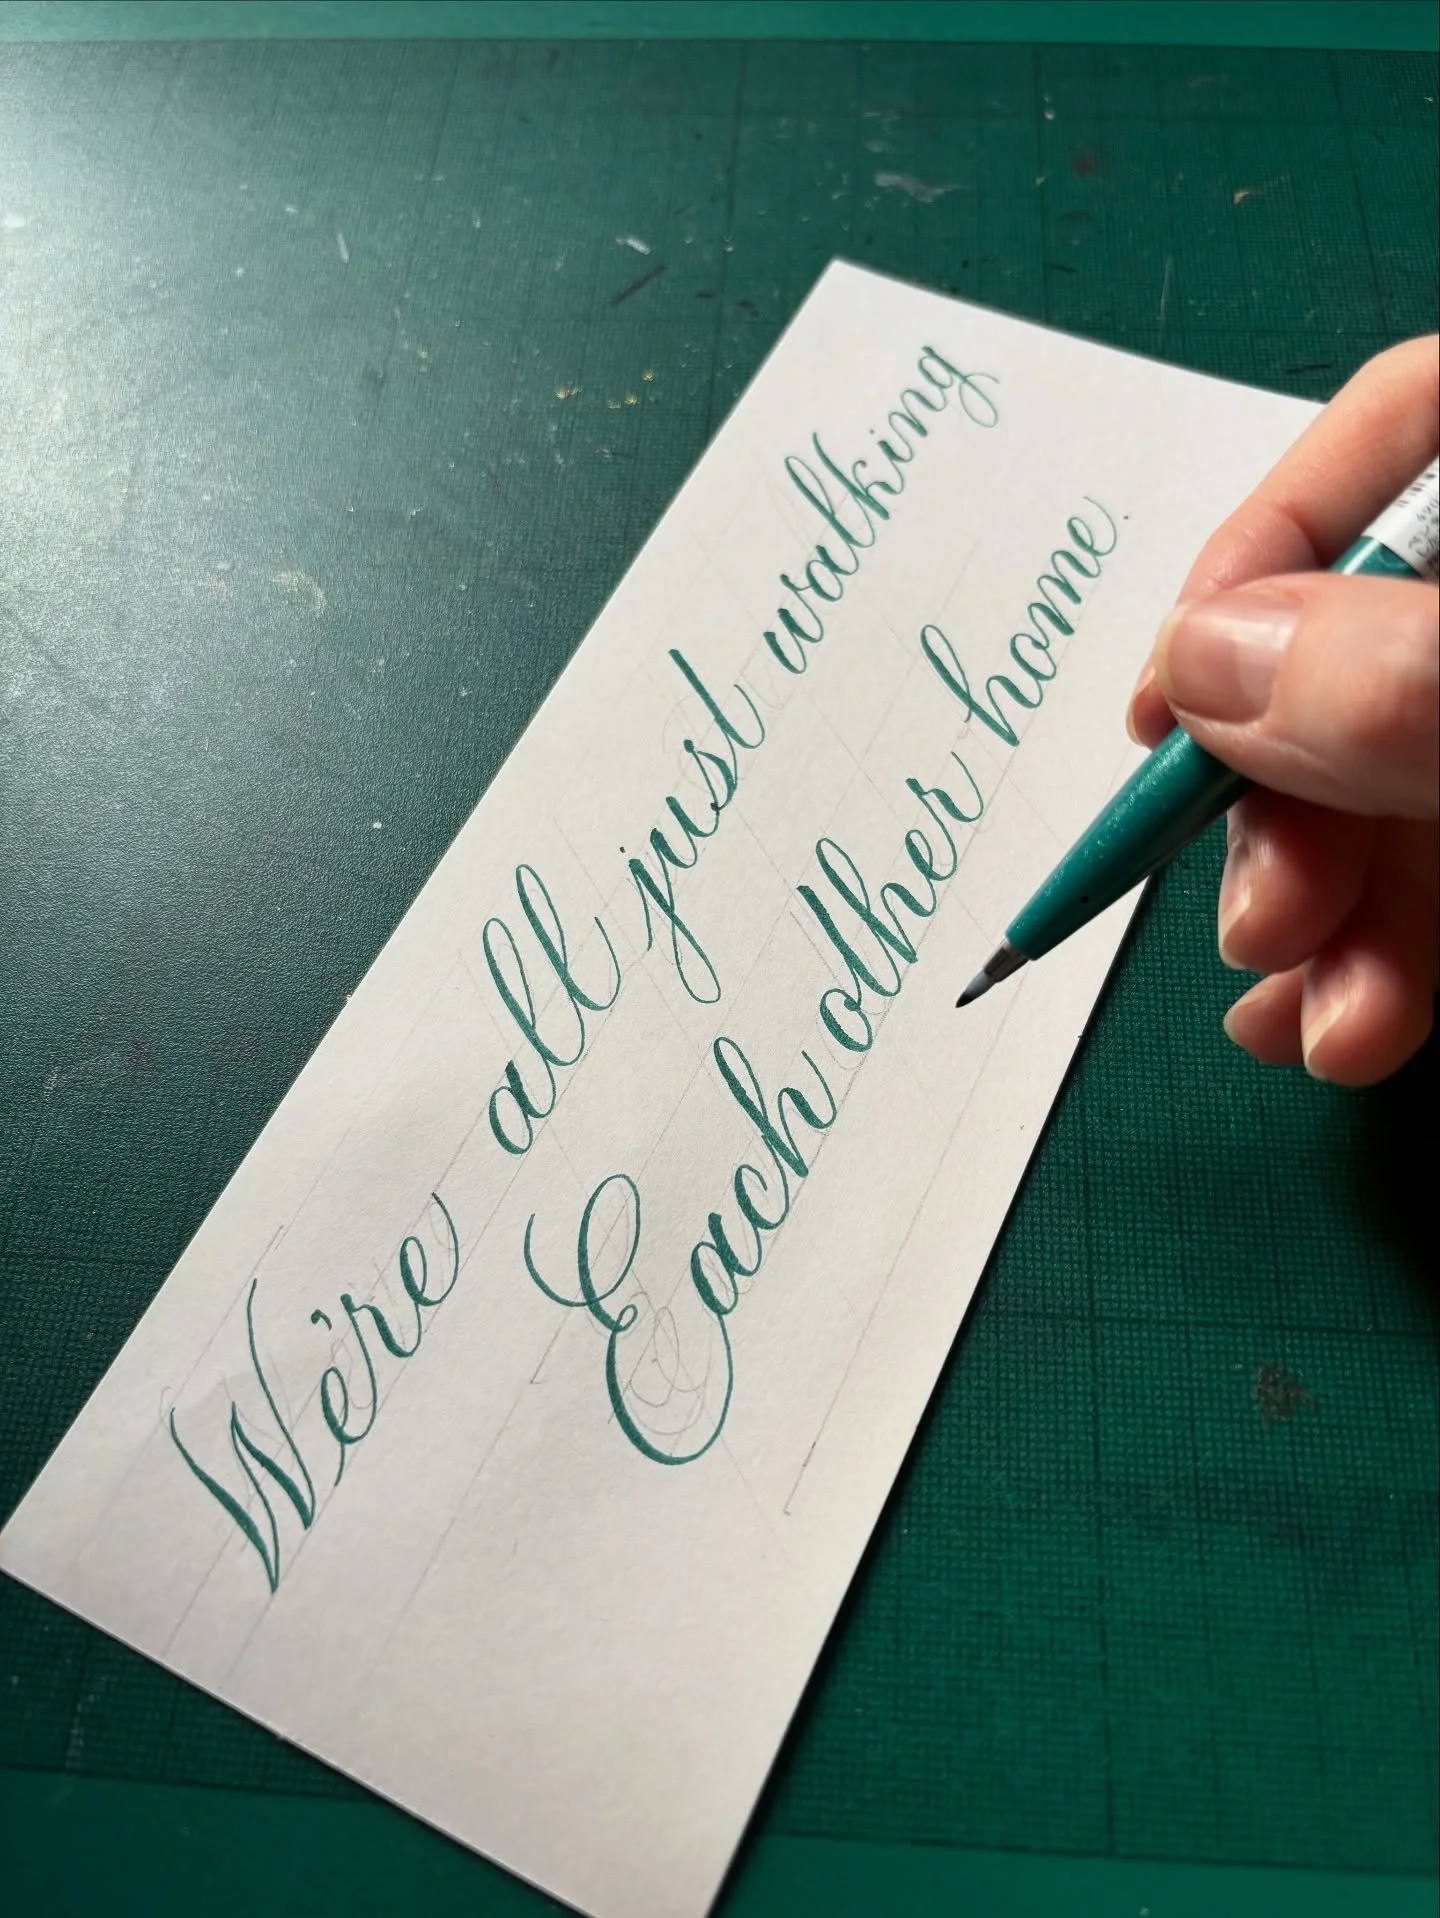 We're all just walking
Each other home.